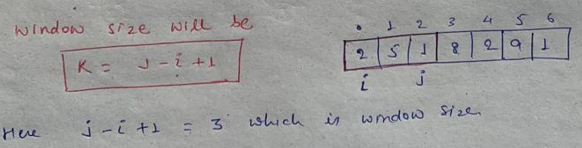 window size will be
K = J - i + 1
0 1 2 3 4 5 6
2 5 1 8 2 9 1
i j
Here j - i + 1 = 3 which is window size.